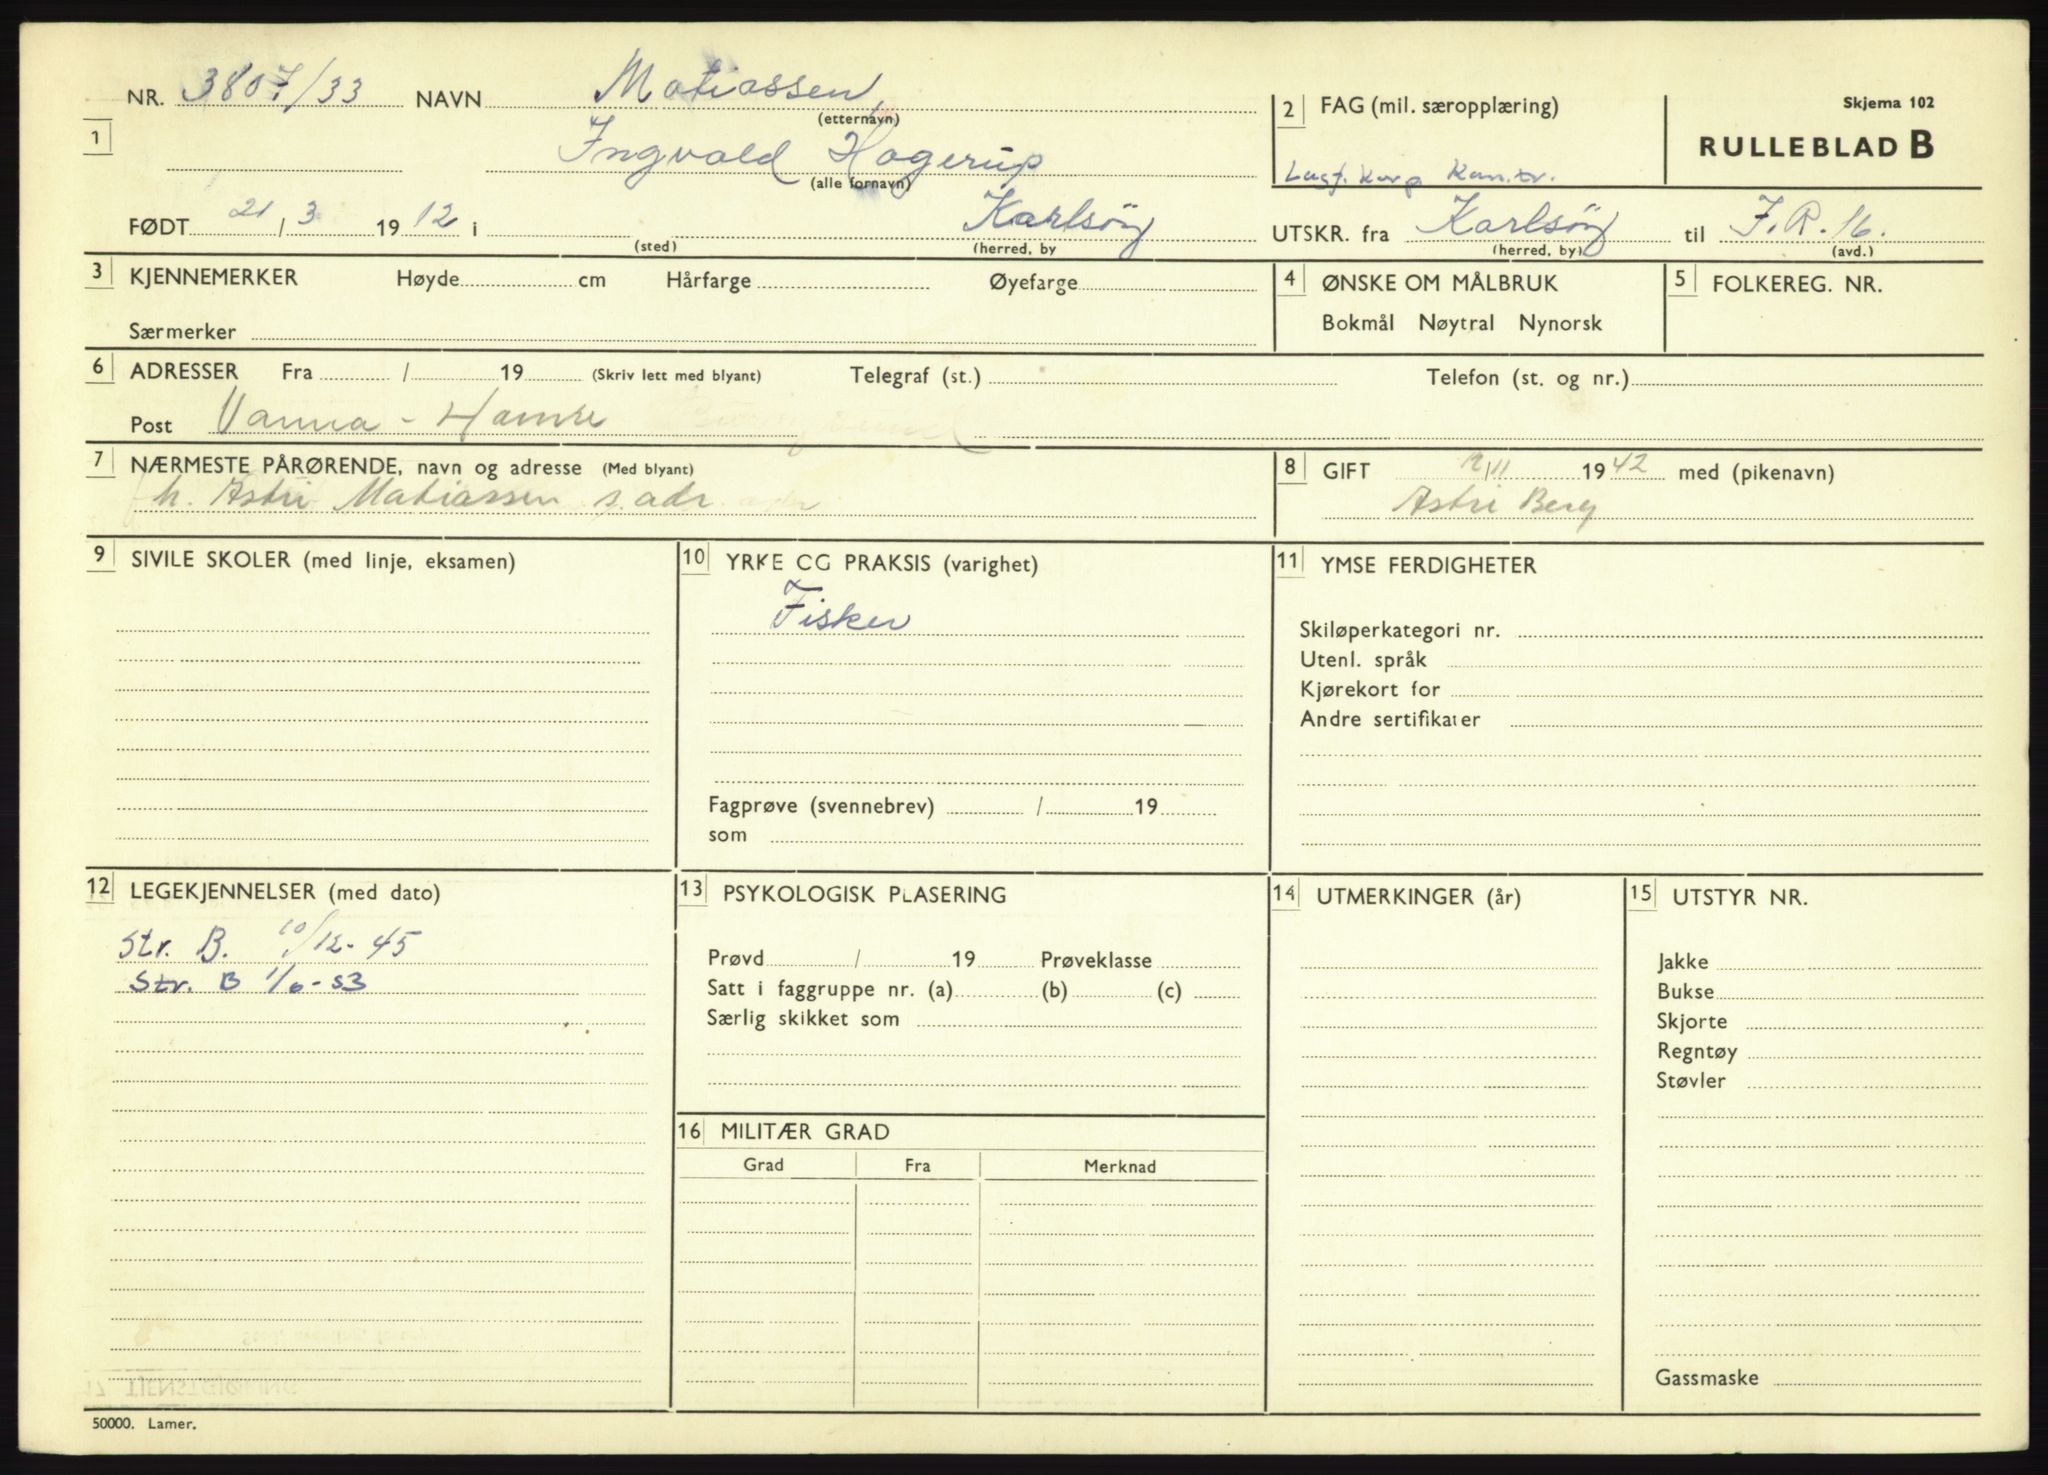 NR. 3807/33 NAVN Matiassen,
(etternavn)
1
Ingvald Hagerup
(alle fornavn)
FØDT 21/3 1912 i Karlsöy
(sted) (herred, by
2 FAG (mil. særopplæring)
Lagf. Korp Kan.tr.
Skjema 102
RULLEBLAD B
UTSKR. fra Karlsöy til I.R.16.
(herred, by) (avd.)
3 KJENNEMERKER Høyde cm Hårfarge Øyefarge
Særmerker
4 ØNSKE OM MÅLBRUK
Bokmål Nøytral Nynorsk
5 FOLKEREG. NR.
6 ADRESSER Fra / 19 (Skriv lett med blyant) Telegraf (st.) Telefon (st. og nr.)
Post Vanna - Hamre
7 NÆRMESTE PÅRØRENDE, navn og adresse (Med blyant)
h. Astri Matiassen s. adr
8 GIFT 12/11 1942 med (pikenavn)
Astri Berg
9 SIVILE SKOLER (med linje, eksamen)
10 YRKE OG PRAKSIS (varighet)
Fisker
Fagprøve (svennebrev) / 19
som
11 YMSE FERDIGHETER
Skiløperkategori nr.
Utenl. språk
Kjørekort for
Andre sertifikater
12 LEGEKJENNELSER (med dato)
Str. B. 10/12-45
Str. B 1/6-53
13 PSYKOLOGISK PLASERING
Prøvd / 19 Prøveklasse
Satt i faggruppe nr. (a) (b) (c)
Særlig skikket som
14 UTMERKINGER (år)
15 UTSTYR NR.
Jakke
Bukse
Skjorte
Regntøy
Støvler
Gassmaske
16 MILITÆR GRAD
Grad Fra Merknad
50000. Lamer.